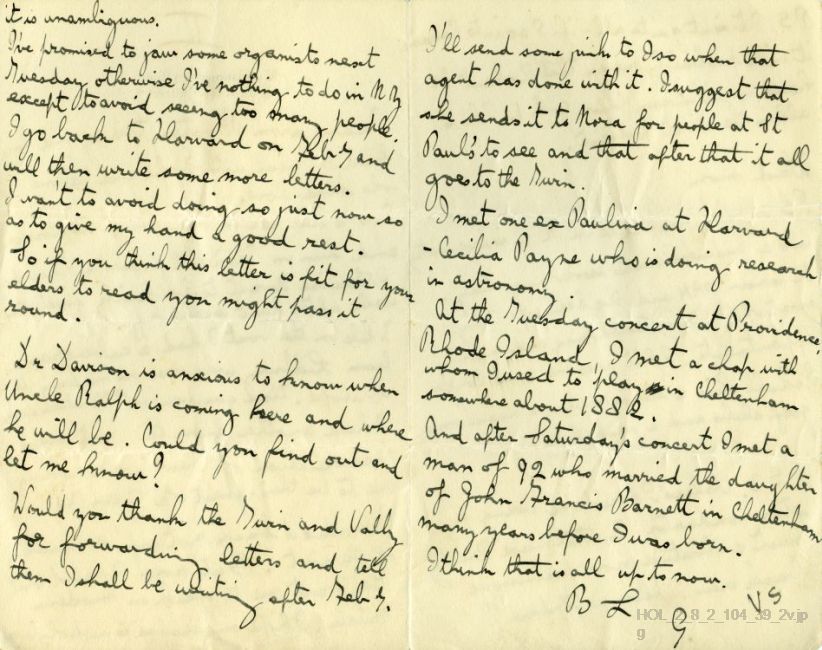 it is unambiguous.
I've promised to jaw some organists next
Tuesday otherwise I've nothing to do in NY
except to avoid seeing too many people.
I go back to Harvard on Feb 7 and
will then write some more letters.
I want to avoid doing so just now so
as to give my hand a good rest.
So if you think this letter is fit for your
elders to read you might pass it
round.
Dr Davison is anxious to know when
Uncle Ralph is coming here and where
he will be. Could you find out and
let me know?
Would you thank the Twin and Vally
for forwarding letters and tell
them I shall be writing after Feb 7.
I'll send some junk to Iso when that
agent has done with it. I suggest that
she sends it to Nora for people at St
Paul's to see and that after that it all
goes to the Twin.
I met one ex Paulina at Harvard
- Cecilia Payne who is doing research
in astronomy.
At the Tuesday concert at Providence,
Rhode Island, I met a chap with
whom I used to play in Cheltenham
somewhere about 1882.
And after Saturday's concert I met a
man of 92 who married the daughter
of John Francis Barnett in Cheltenham
many years before I was born.
I think that is all up to now.
B L
G
VS
HOL_2_8_2_104_39_2v.jp
g